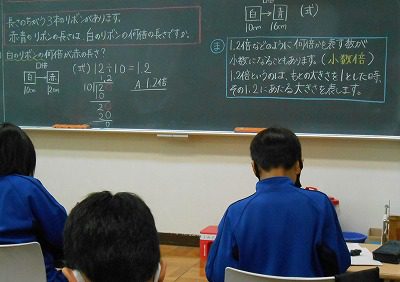 長さのちがう3本のリボンがあります。
赤、青のリボンの長さは、白のリボンの何倍の長さですか。
白のリボンの何倍が赤の長さ?
□倍
白→赤
10cm 12cm
(式) 12÷10=1.2
1.2
10)12
10
20
20
0
A 1.2倍
白→青
10cm 16cm
(式)
ま
1.2倍などのように何倍かを表す数が
小数になることもあります。(小数倍)
1.2倍というのは、もとの大きさを1とした時、
その1.2にあたる大きさを表します。